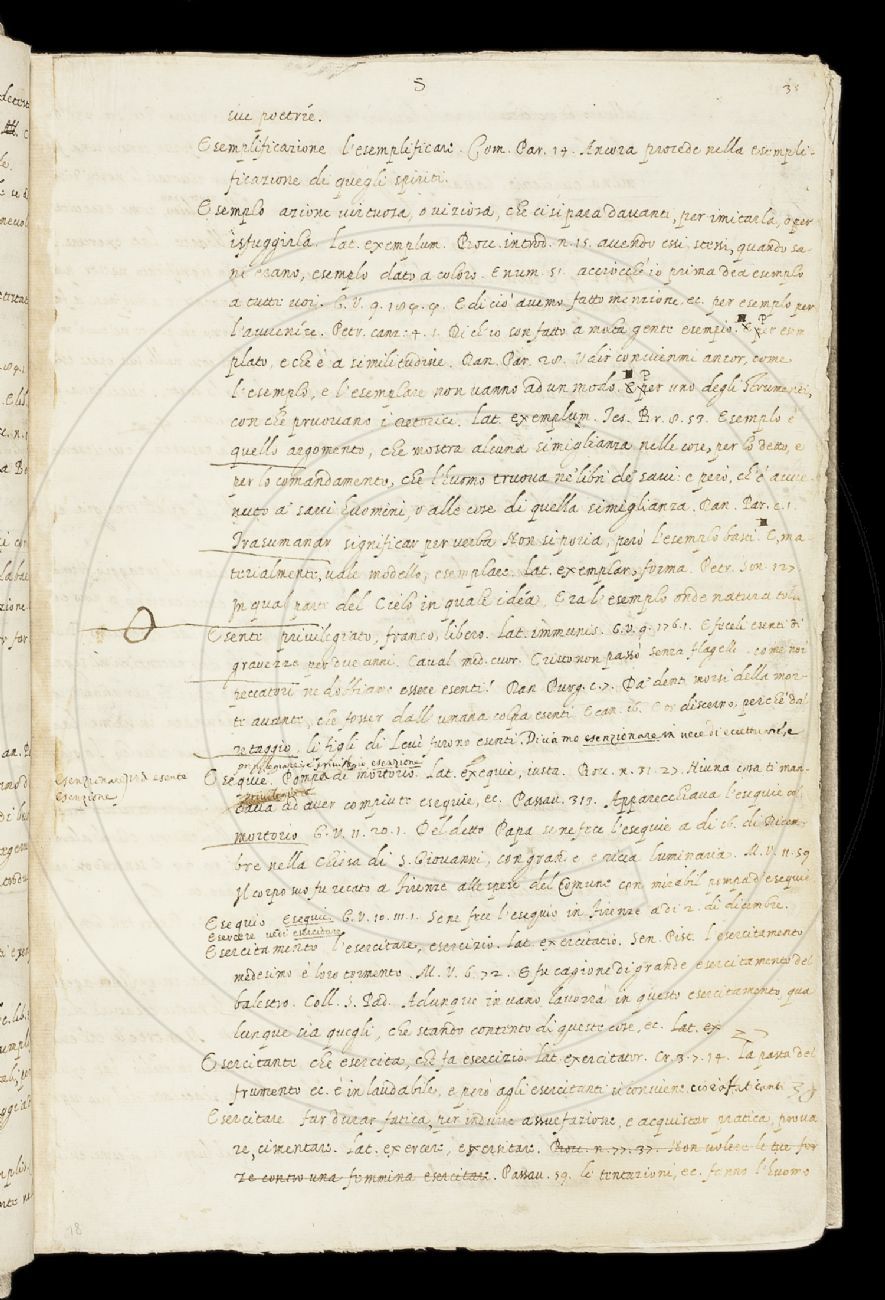 S
35
sue poetrie.
Esemplificazione l'esemplificare. Com. Par. 14. Ancora procede nella esempli-
ficazione di quegli spiriti.
Esemplo azione virtuosa, o viziosa, che ci si para davanti, per imitarla, o per
isfuggirla. Lat. exemplum. Bocc. introd. n. 15. avendo essi stessi, quando sa-
ni erano, esemplo dato a coloro. E num. 51. acciocchè io prima dea esemplo
a tutti voi. G. V. 9. E di ciò avemo fatto menzione, ec. per esemplo per
l'avvenire. Petr. canz. 4. 1. Di ch'io son fatto a molta gente esempio. per esem
plato, e che è a similitudine. Dan. Par. 28. Udir convienmi ancor, come
l'esemplo, e l'esemplare non vanno ad un modo. per uno degli strumenti,
con che pruovano i rettorici. Lat. exemplum. Tes. Br. 8. 57. Esemplo è
quello argomento, che mostra alcuna simiglianza nelle cose, per lo detto, e
per lo comandamento, che l'huomo truova ne' libri de' savi: e però, ch'è avve
nuto a' savi huomini, o alle cose di quella simiglianza. Dan. Par. c. 1.
Trasumanar significar per verba Non si poria, però l'esemplo basti. E, ma-
terialmente, vale modello, esemplare. Lat. exemplar, forma. Petr. Son. 127.
In qual parte del Cielo in quale idéa, Era l'esemplo onde natura tolse
Esente privilegiato, franco, libero. Lat. immunis. G. V. 9. 176. 1. E feceli esenti di
gravezze per due anni. Caval. med. cuor. Cristo non passò senza flagelli. come noi
peccatori ne dobbiamo essere esenti? Dan. Purg. c. 7. Da' denti morsi della mor-
te avante, che fosser dall'umana colpa esenti. E can. 16. Et or discerno, perchè dal
retaggio, li figli di Levì furono esenti. Diciamo esenzionare in vece di
privilegiare e privilegio esenzione
Esenzionare esente
Esenzione
Esequie. Pompa di mortorio. Lat. exequie, iusta. Bocc. n. 31. 27. Niuna cosa ti man-
cava ad aver compiute esequie, ec. Passav. 319. Apparecchiava l'esequie col
mortorio G. V. 11. 20. 1. Del detto Papa se ne fece l'esequie a di 16. di Dicem-
bre nella Chiesa di S. Giovanni, con grande e ricca luminaria. M. V. 11. 59
Il corpo suo fu recato a Firenze alle spese del Comune con mirabil pompa d'esequie
Esequio esequie. G. V. 10. 111. 1. Se ne fece l'esequio in Firenze a di 2. di dicembre.
Esercere vedi esercitare
Esercitamento l'esercitare, esercizio. Lat. exercitatio. Sen. Pist. l'esercitamento
medesimo è loro tormento. M. V. 6. 72. E fu cagione di grande esercitamento del
balestro. Coll. S. Pad. Adunque in vano lavorrà in questo esercitamento qua
lunque sia quegli, che stando contento di queste cose, ec. Lat. ex
Esercitante che esercita, che fa esercizio. Lat. exercitator. Cr. 3. 7. 14. La pasta del
frumento ec. è in laudabile, e però agli esercitanti si conviene, cioè o faticanti
Esercitare far durar fatica, per indurre assuefazione, e acquistar pratica, prova
re, cimentare. Lat. exercere, exercitare. Bocc. n. 77. 37. Non volere le tue for
ze contro una femmina esercitare. Passav. 59. le tentazioni, ec. fanno l'huomo
78